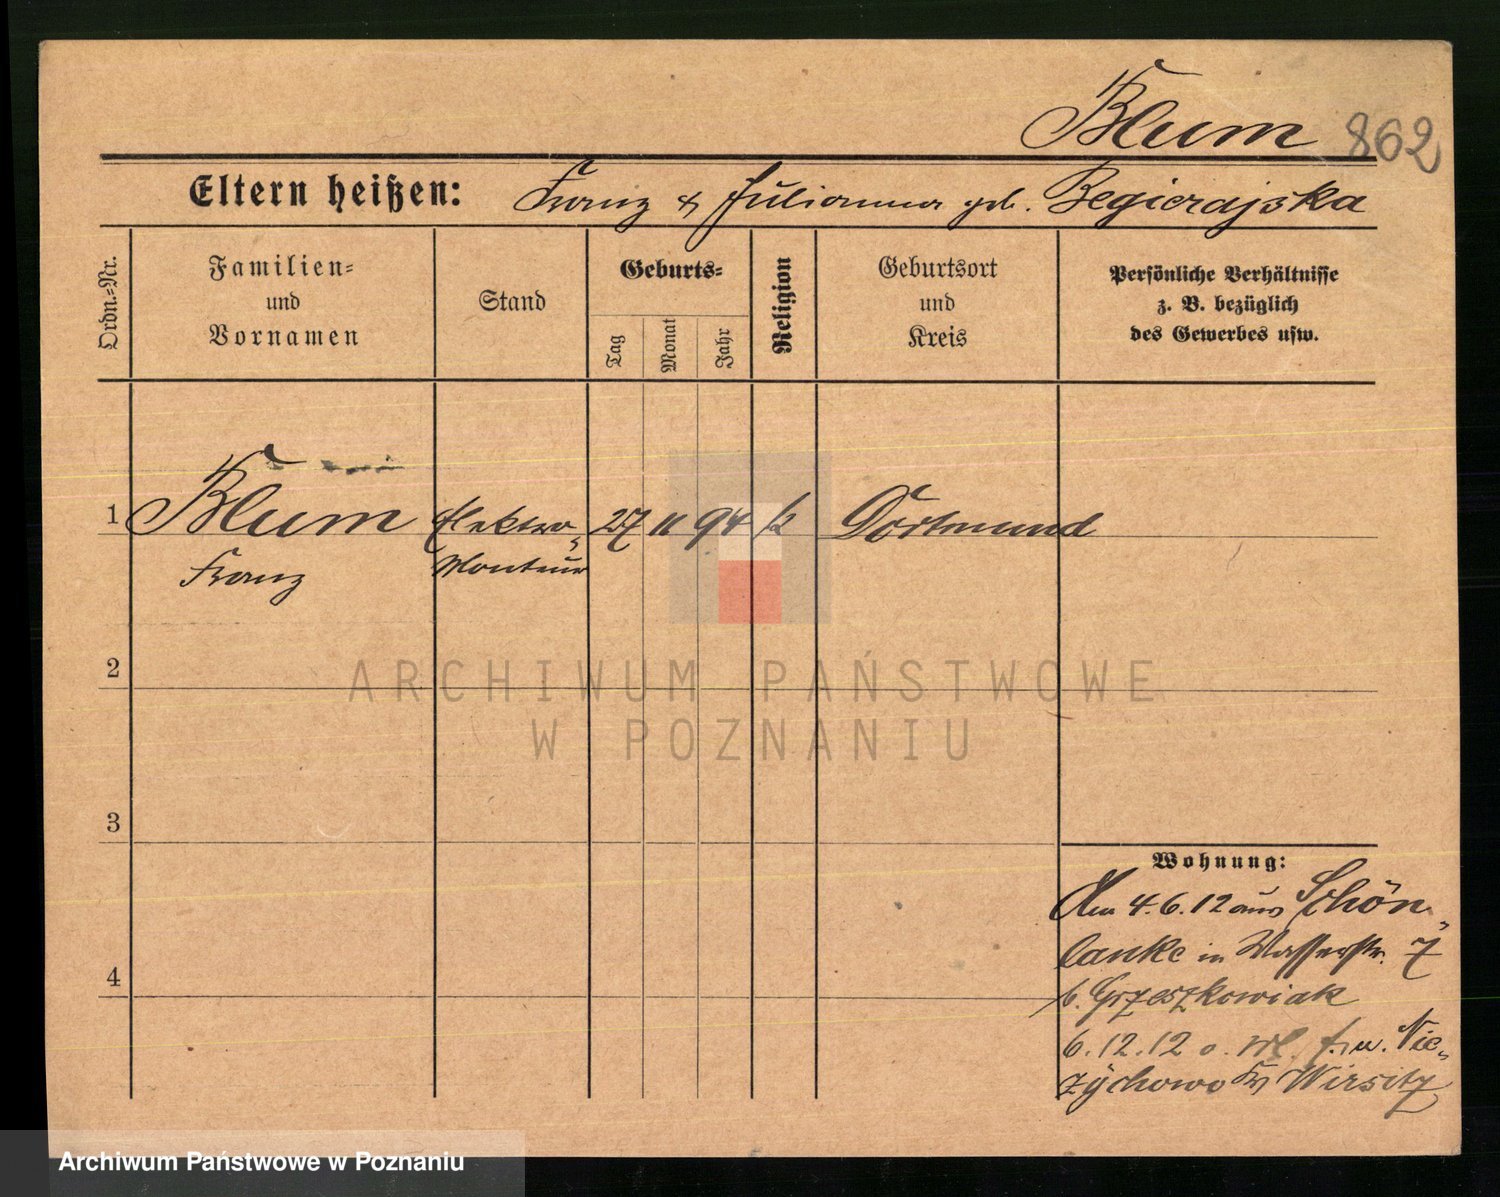 Blum 862
Eltern heißen: Franz & Julianna geb. Regierajska
Ordn.-Nr.
Familien-
und
Vornamen
Stand
Geburts-
Tag
Monat
Jahr
Religion
Geburtsort
und
Kreis
Persönliche Verhältnisse
z. B. bezüglich
des Gewerbes usw.
1 Blum Elektro- 27 11 94 k Dortmund
Franz Monteur
2
ARCHIWUM PAŃSTWOWE
W POZNANIU
3
Wohnung:
Am 4.6.12 aus Schön-
lanke in Wasserstr. 7
b. Grzeszkowiak
4
6.12.12 n. Nie-
zychowo Kr Wirsitz
Archiwum Państwowe w Poznaniu